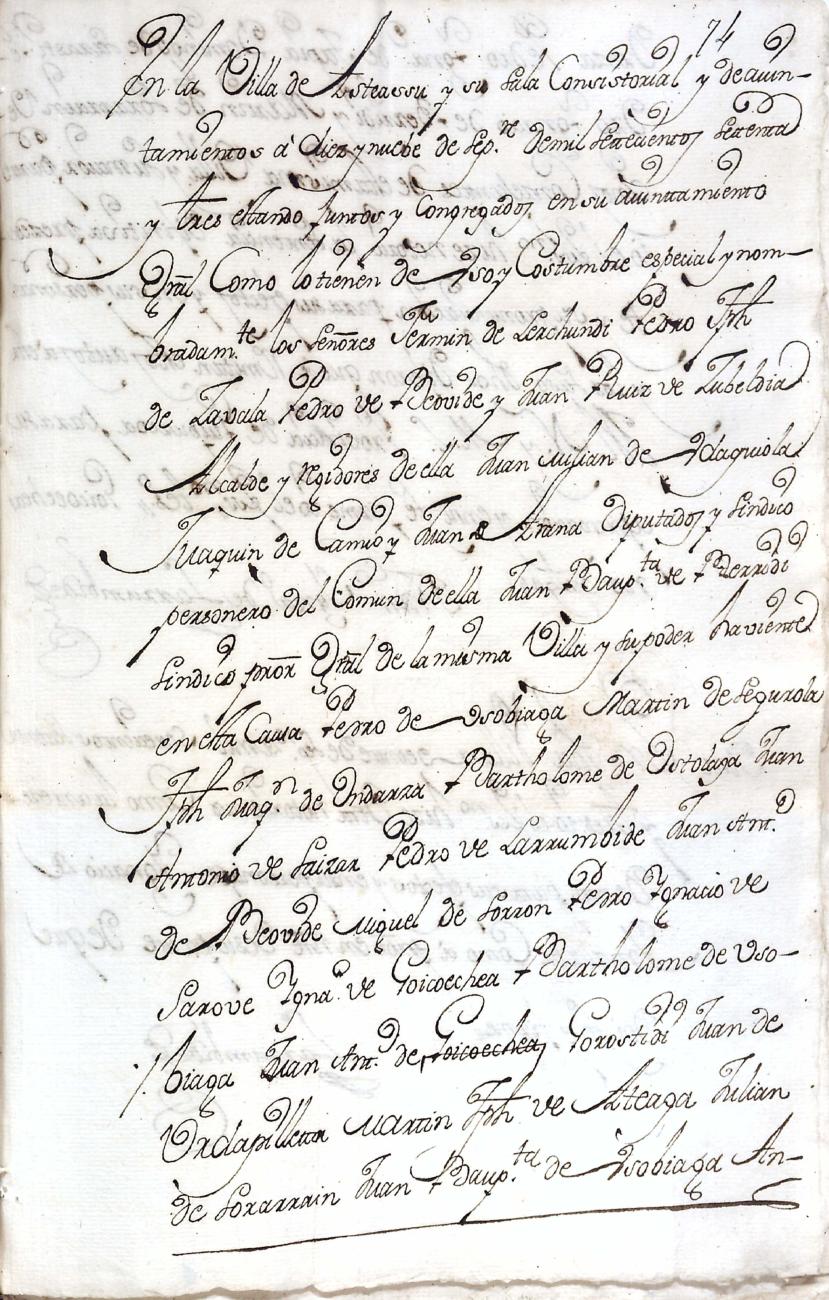 74
En la Villa de Asteassu y su Sala Consistorial y de aiun-
tamientos á Diez y nuebe de Sep.re de mil Setecientos Setenta
y tres estando Juntos y Congregados en su aiuntamiento
Gral Como lo tienen de Uso y Costumbre especial y nom-
bradam.te los Señores Fermin de Lerchundi Pedro Jph
de Zavala Pedro de Beovide y Juan Ruiz de Zubeldia
Alcalde y regidores de ella Juan Milian de
Juaquin de y Juan de Arana Diputados y Sindico
personero del Comun de ella Juan Baup.ta de Berridi
Sindico pror Gral de la misma Villa y su poder haviente
en esta Causa Pedro de Usobiaga Martin de Segurola
Jph Juaq.n de Undarra Bartholome de Ostolaza Juan
Antonio de Saizar Pedro de Larrumbide Juan Ant.o
de Beovide Miguel de Sorron Pedro Ygnacio de
Sarove Ygna.o de Goicoechea Bartholome de Uso-
biaga Juan Ant.o de Goicoechea Gorostidi Juan de
Urdapilleta Martin Jph de Ateaga Julian
de Sorarrain Juan Baup.ta de Usobiaga An-